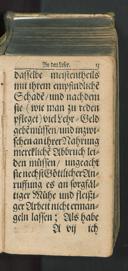 An den Leser.
dasselbe meistentheils
mit ihrem empfindliche
Schade/ und nachdem
sie (wie man zu reden
pfleget) viel Lehr-Geld
gebẽ müssen/ und inzwi-
schen an ihrer Nahrung
merckliche Abbruch lei-
den müssen/ ungeacht
sie nechst Göttlicher An-
ruffung es an sorgfäl-
tiger Mühe und fleißi-
ger Arbeit nicht erman-
geln lassen; Als habe
A vij ich